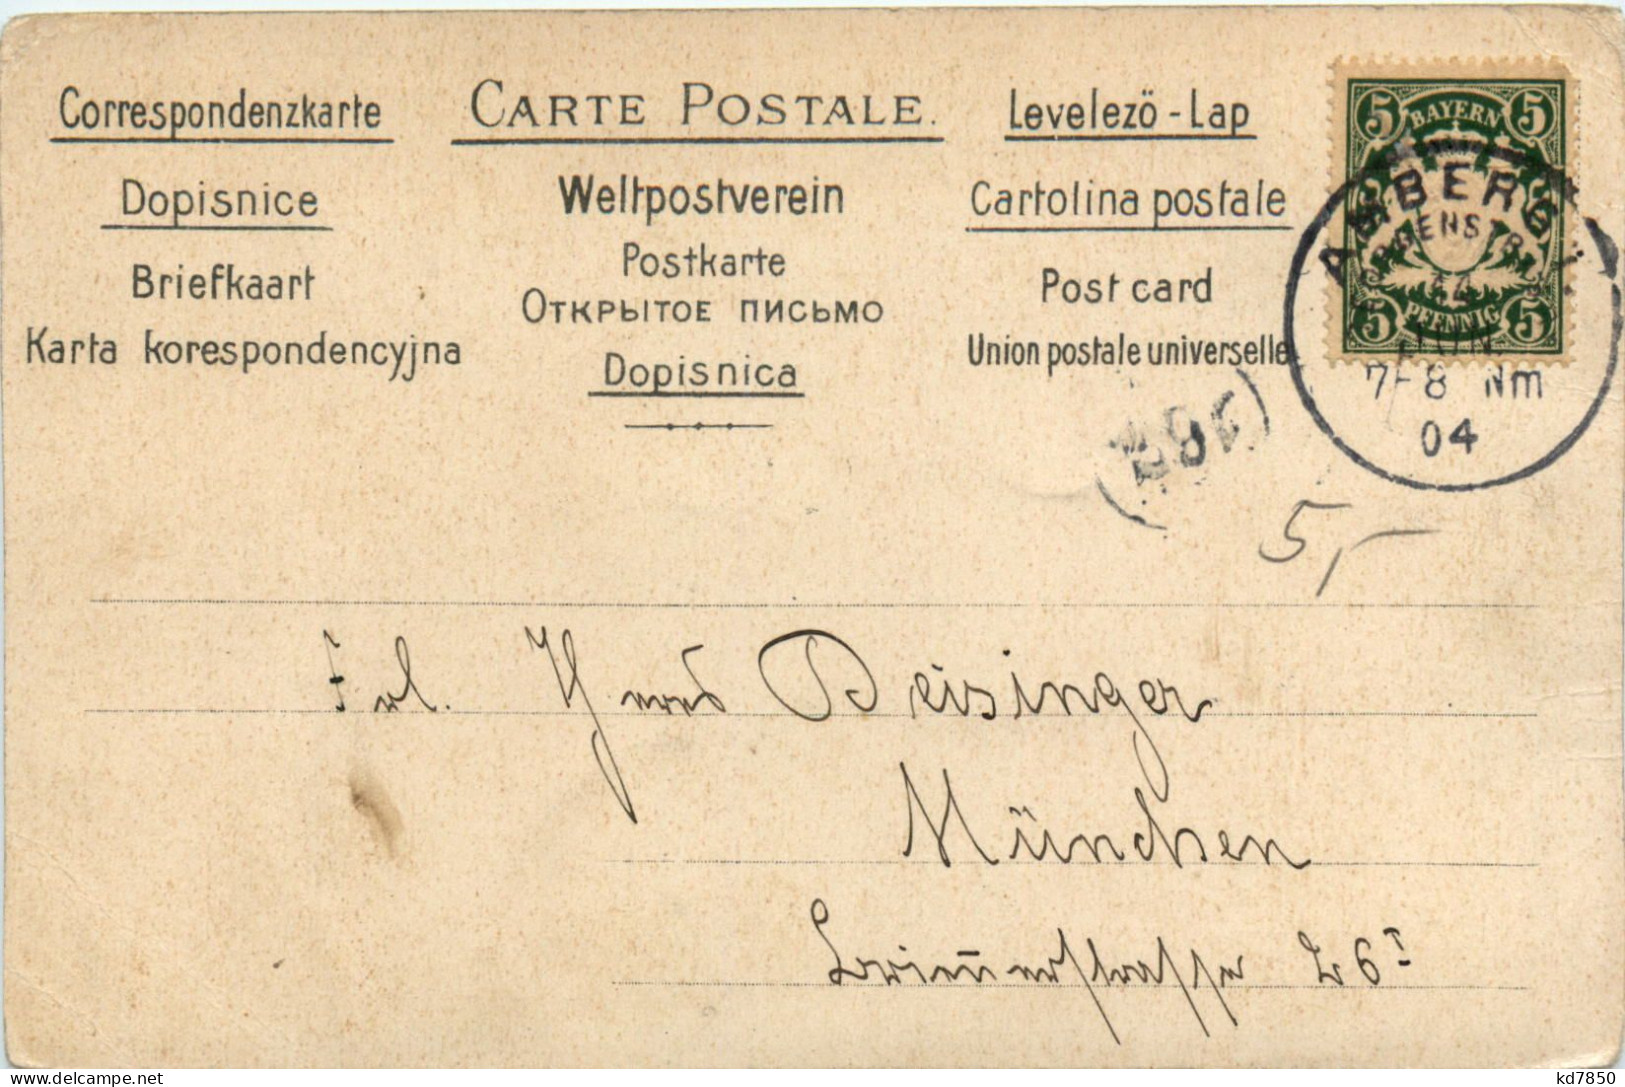 Correspondenzkarte
Dopisnice
Briefkaart
Karta korespondencyjna
CARTE POSTALE.
Weltpostverein
Postkarte
Открытое письмо
Dopisnica
Levelező - Lap
Cartolina postale
Post card
Union postale universelle
5 BAYERN 5
5 PFENNIG 5
AMBERG
14
JUN
7-8 Nm
04
5,-
Frl. Deisinger
München
26 I
kd7850